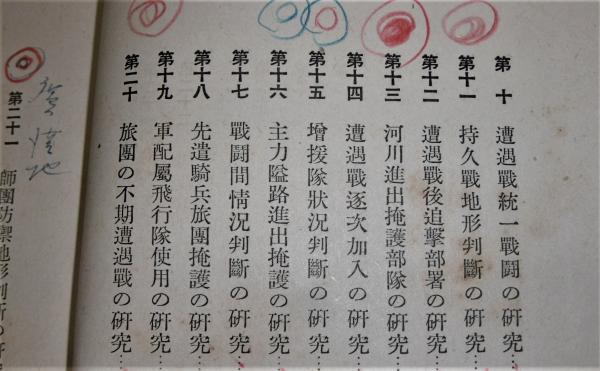 第十 遭遇戰統一戰鬪の硏究…
第十一 持久戰地形判斷の硏究…
第十二 遭遇戰後追擊部署の硏究…
第十三 河川進出掩護部隊の硏究…
第十四 遭遇戰逐次加入の硏究…
第十五 增援隊狀況判斷の硏究…
第十六 主力隘路進出掩護の硏究…
第十七 戰鬪間情況判斷の硏究…
第十八 先遣騎兵旅團掩護の硏究…
第十九 軍配屬飛行隊使用の硏究…
第二十 旅團の不期遭遇戰の硏究…
第二十一 師團防禦地形判斷の硏究